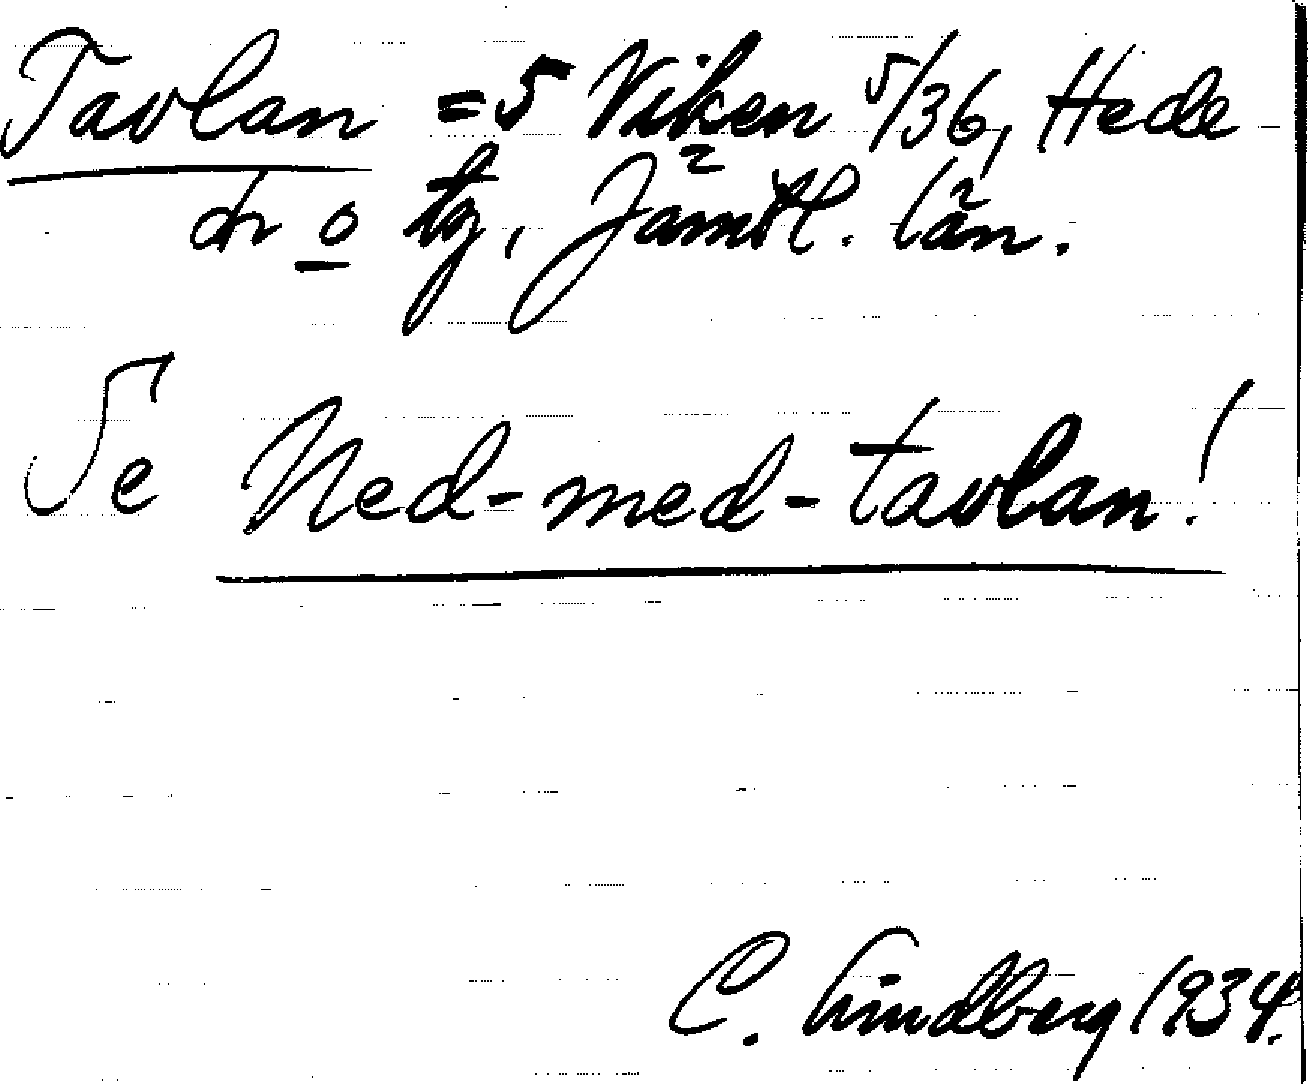 Tavlan = 5 Viken 5/36, Hede
dr o tg, Jämtl. län.
Se Ned-med-tavlan!
C. Lindberg 1934.